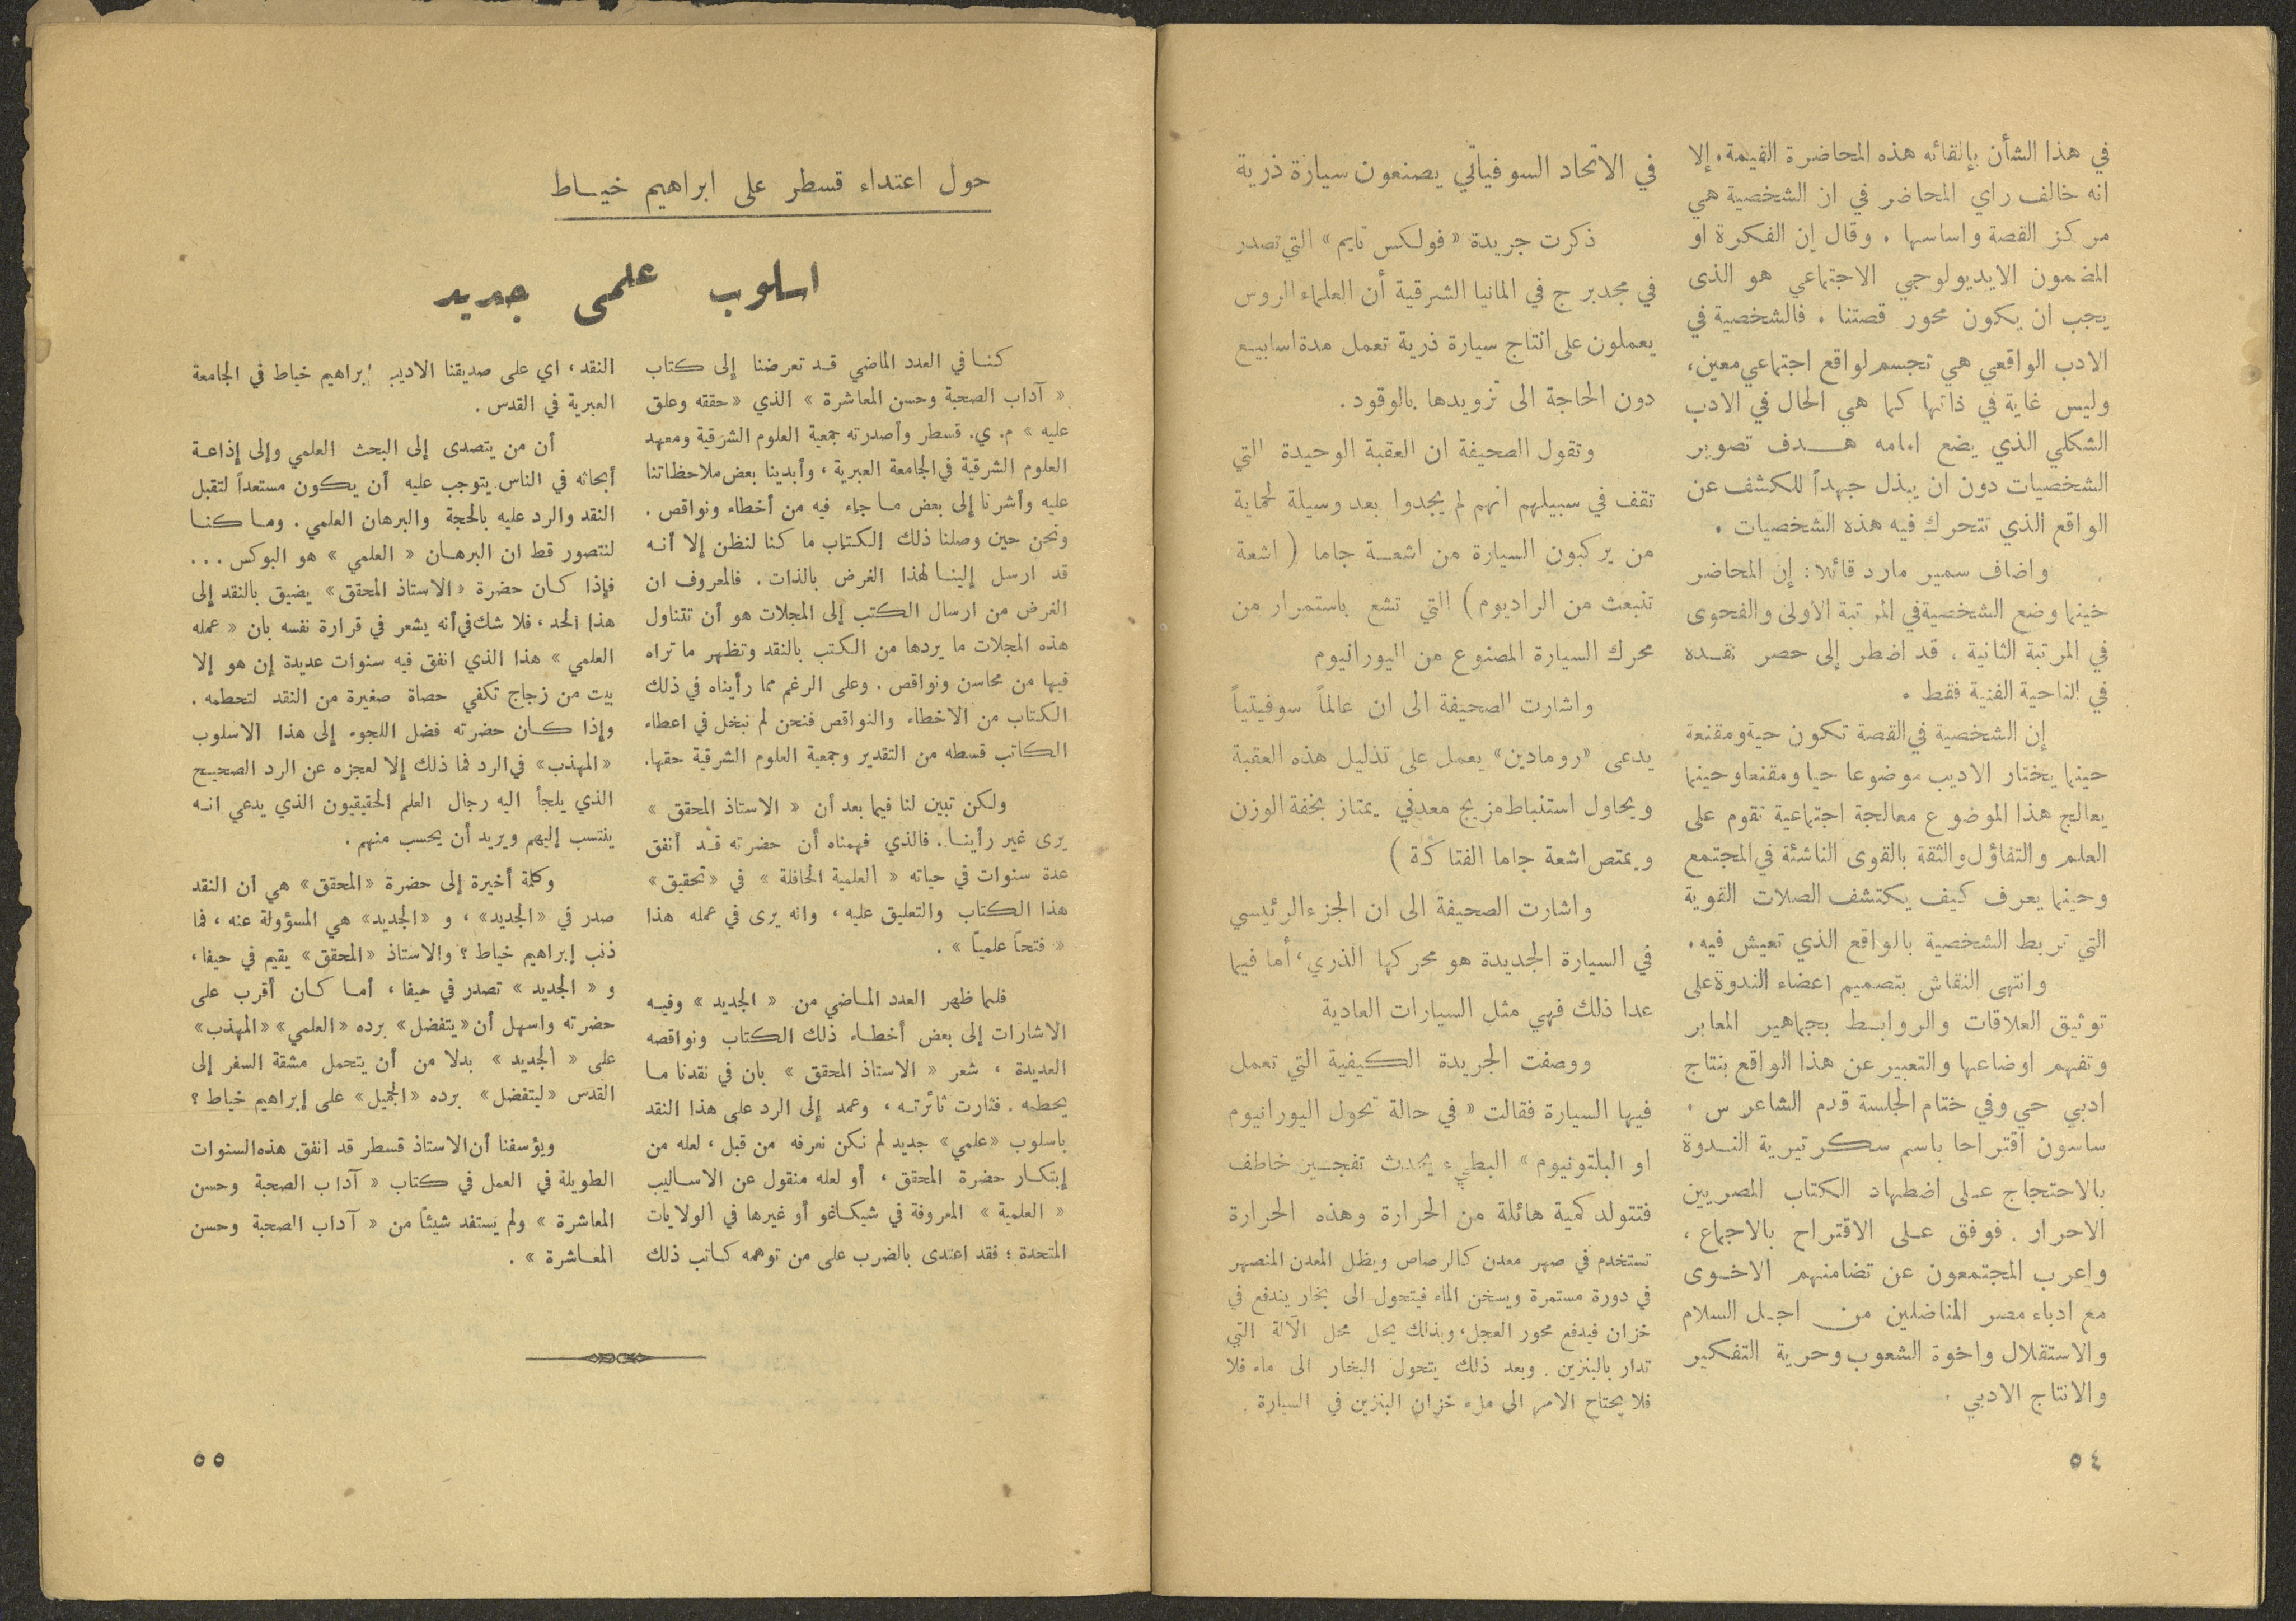 في هذا الشأن بإلقائه هذه المحاضرة القيمة، إلا
انه خالف راي المحاضر في ان الشخصية هي
مركز القصة واساسها . وقال إن الفكرة او
المضمون الايديولوجي الاجتماعي هو الذى
يجب ان يكون محور قصتنا . فالشخصية في
الادب الواقعي هي تجسم لواقع اجتماعي معين،
وليس غاية في ذاتها كما هي الحال في الادب
الشكلي الذي يضع امامه هـدف تصوير
الشخصيات دون ان يبذل جهداً للكشف عن
الواقع الذي تتحرك فيه هذه الشخصيات .
واضاف سمير مارد قائلا: إن المحاضر
حينما وضع الشخصية في المرتبة الاولى والفحوى
في المرتبة الثانية ، قد اضطر إلى حصر نقـده
في الناحية الفنية فقط .
إن الشخصية في القصة تكون حية ومقنعة
حينما يختار الاديب موضوعا حيا ومقنعا وحينما
يعالج هذا الموضوع معالجة اجتماعية تقوم على
العلم والتفاؤل والثقة بالقوى الناشئة في المجتمع
وحينما يعرف كيف يكتشف الصلات القوية
التي تربط الشخصية بالواقع الذي تعيش فيه.
وانتهى النقاش بتصميم اعضاء الندوة على
توثيق العلاقات والروابـط بجماهير المعابر
وتفهم اوضاعها والتعبير عن هذا الواقع بنتاج
ادبي حي وفي ختام الجلسة قدم الشاعر س .
ساسون اقتراحا باسم سكرتيرية النـدوة
بالاحتجاج عـلى اضطهاد الكتاب المصريين
الاحرار . فوفق عـلى الاقتراح بالاجماع ،
واعرب المجتمعون عن تضامنهم الاخـوى
مع ادباء مصر المناضلين من اجـل السلام
والاستقلال واخوة الشعوب وحرية التفكير
والانتاج الادبي .
٥٤
في الاتحاد السوفياتي يصنعون سيارة ذرية
ذكرت جريدة «فولكس تايم» التي تصدر
في مجدبرج في المانيا الشرقية أن العلماء الروس
يعملون على انتاج سيارة ذرية تعمل مدة اسابيـع
دون الحاجة الى تزويدها بالوقود.
وتقول الصحيفة ان العقبة الوحيدة التي
تقف في سبيلهم انهم لم يجدوا بعد وسيلة لحماية
من يركبون السيارة من اشعـة جاما ( اشعة
تنبعث من الراديوم ) التي تشع باستمرار من
محرك السيارة المصنوع من اليورانيوم
واشارت الصحيفة الى ان عالماً سوفيتياً
يدعى «رومادين» يعمل على تذليل هذه العقبة
ويحاول استنباط مزيج معدني يمتاز بخفة الوزن
ويمتص اشعة جاما الفتاكة )
واشارت الصحيفة الى ان الجزء الرئيسي
في السيارة الجديدة هو محركها الذري، أما فيما
عدا ذلك فهي مثل السيارات العادية
ووصفت الجريدة الكيفية التي تعمل
فيها السيارة فقالت « في حالة تحول اليورانيوم
او البلتونيوم » البطيء يحدث تفجـير خاطف
فتتولد كمية هائلة من الحرارة وهذه الحرارة
تستخدم في صهر معدن كالرصاص ويظل المعدن المنصهر
في دورة مستمرة ويسخن الماء فيتحول الى بخار يندفع في
خزان فيدفع محور العجل، وبذلك يحل محل الآلة التي
تدار بالبنزين . وبعد ذلك يتحول البخار الى ماء فلا
فلا يحتاج الامر الى ملء خزان البنزين في السيارة .
حول اعتداء قسطر على ابراهيم خيـاط
اسلوب علمى جديد
كنـا في العدد الماضي قـد تعرضنا إلى كتاب
« آداب الصحبة وحسن المعاشرة » الذي «حققه وعلق
عليه » م. ي. قسطر وأصدرته جمعية العلوم الشرقية ومعهد
العلوم الشرقية في الجامعة العبرية ، وأبدينا بعض ملاحظاتنا
عليه وأشرنا إلى بعض مـا جاء فيه من أخطاء ونواقص .
ونحن حين وصلنا ذلك الكتاب ما كنا لنظن إلا أنـه
قد ارسل إلينـا لهذا الغرض بالذات . فالمعروف ان
الغرض من ارسال الكتب إلى المجلات هو أن تتناول
هذه المجلات ما يردها من الكتب بالنقد وتظهر ما تراه
فيها من محاسن ونواقص . وعلى الرغم مما رأيناه في ذلك
الكتاب من الاخطاء والنواقص فنحن لم نبخل في اعطاء
الكاتب قسطه من التقدير وجمعية العلوم الشرقية حقها.
ولكن تبين لنا فيما بعد أن « الاستاذ المحقق »
يرى غير رأينـا . فالذي فهمناه أن حضرته قـد أنفق
عدة سنوات في حياته « العلمية الحافلة » في «تحقيق»
هذا الكتاب والتعليق عليه ، وانه يرى في عمله هذا
« فتحاً علمياً » .
فلما ظهر العدد المـاضي من « الجديد » وفيـه
الاشارات إلى بعض أخطـاء ذلك الكتاب ونواقصه
العديدة ، شعر « الاستاذ المحقق » بان في نقدنا مـا
يحطمه . فثارت ثائرتـه ، وعمد إلى الرد على هذا النقد
باسلوب «علمي» جديد لم نكن نعرفه من قبل ، لعله من
إبتكـار حضرة المحقق ، أو لعله منقول عن الاسـاليب
« العلمية » المعروفة في شيكـاغو أو غيرها في الولايات
المتحدة ؛ فقد اعتدى بالضرب على من توهمه كـاتب ذلك
النقد ، اي على صديقنا الاديب إبراهيم خياط في الجامعة
العبرية في القدس .
أن من يتصدى إلى البحث العلمي وإلى إذاعـة
أبحاثه في الناس يتوجب عليه أن يكون مستعداً لتقبل
النقد والرد عليه بالحجة والبرهان العلمي . ومـا كنـا
لنتصور قط ان البرهـان « العلمي » هو البوكس ...
فإذا كـان حضرة «الاستاذ المحقق» يضيق بالنقد إلى
هذا الحد ، فلا شك في أنه يشعر في قرارة نفسه بان « عمله
العلمي » هذا الذي انفق فيه سنوات عديدة إن هو إلا
بيت من زجاج تكفي حصاة صغيرة من النقد لتحطمه .
وإذا كـان حضرته فضل اللجوء إلى هذا الاسلوب
«المهذب» في الرد فما ذلك إلا لعجزه عن الرد الصحيـح
الذي يلجأ اليه رجال العلم الحقيقيون الذي يدعي انـه
ينتسب إليهم ويريد أن يحسب منهم .
وكلمة أخيرة إلى حضرة «المحقق» هي أن النقد
صدر في «الجديد» ، و «الجديد» هي المسؤولة عنه ، فما
ذنب إبراهيم خياط ؟ والاستاذ «المحقق» يقيم في حيفا ،
و « الجديد » تصدر في حيفا ، أمـا كـان أقرب على
حضرته واسهل أن «يتفضل» برده «العلمي» «المهذب»
على « الجديد » بدلا من أن يتحمل مشقة السفر إلى
القدس «ليتفضل» برده «الجميل» على إبراهيم خياط ؟
ويؤسفنا أن الاستاذ قسطر قد انفق هذه السنوات
الطويلة في العمل في كتاب « آداب الصحبة وحسن
المعاشرة » ولم يستفد شيئاً من « آداب الصحبة وحسن
المعـاشرة » .
٥٥